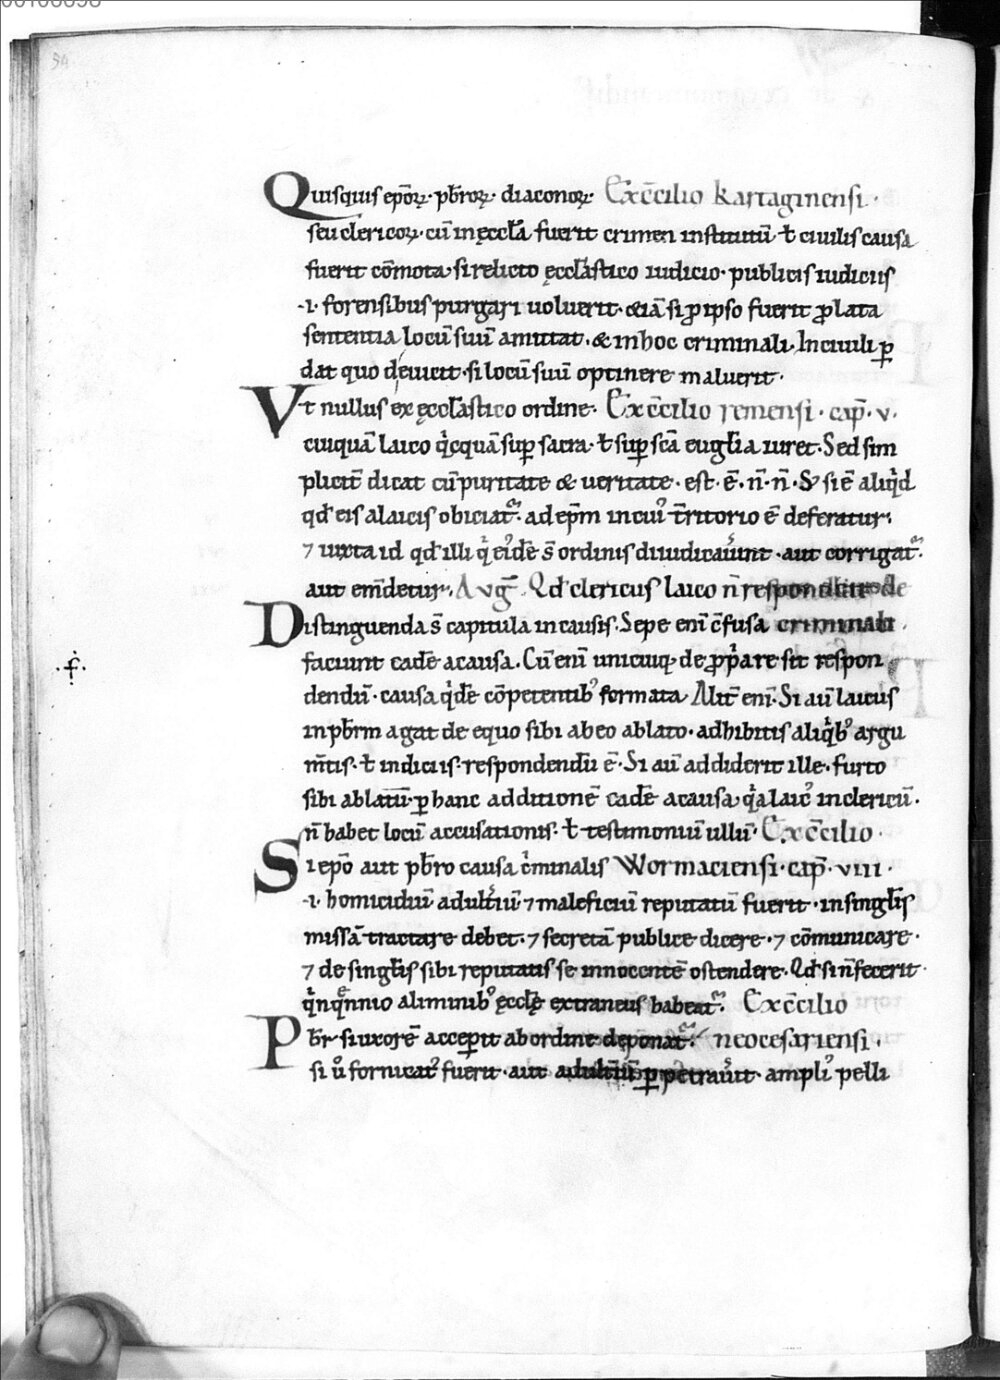 Quisquis ep̄oꝝ· pb̄roꝝ· diaconoꝝ· Ex c̄cilio kartaginensi·
seu clericoꝝ· cū in ęccl̄a fuerit crimen institutū ł ciuilis causa
fuerit cōmota· si relicto ęccl̄astico iudicio· publicis iudiciis
·i· forensibus purgari uoluerit· &iā si ꝓ ipso fuerit ꝓlata
sententia locū suū amittat· & in hoc criminali· In ciuili ꝑ
dat quo deuicit· si locū suū optinere maluerit·
Vt nullus ex ęccl̄astico ordine· Ex c̄cilio remensi· cap̄· v·
cuiquā laico qicquā suꝑ sacra· ł suꝑ sc̄a eugl̄ia iuret· Sed sim
plicit̄ dicat cū puritate & ueritate· est· ē· n̄· n̄· & si ē aliqid
qd̄ eis a laicis obiciat᷑· ad ep̄m in cuiꝰ t̄ritorio ē deferatur·
⁊ iuxta id qd̄ illi q̄ eiꝰdē s̄ ordinis diiudicauint· aut corrigat᷑·
aut em̄detur· Avḡ Qd̄ clericus laico n̄ respondeat de
Distinguenda s̄ capitula in causis· Sepe eni c̄fusa criminali·
faciunt cadē a causa. Cū eni unicuiq; de ꝓp̄a re sit respon
·f·
dendū· causa qidē cōpetentibꝰ formata Alit̄ eni· Si aū laicus
in pb̄rm agat de equo sibi ab eo ablato· adhibitis aliqibꝰ argu
m̄tis· ł indiciis· respondendū ē· Si aū addiderit ille· furto
sibi ablatū· ꝑ hanc additionē cadē a causa· qa laicꝰ in clericū·
n̄ habet locū accusationis· ł testimoniū ullū· Ex c̄cilio·
Si ep̄o aut pb̄ro causa c̄minalis Wormaciensi· cap̄· viii·
·i· homicidiū adult̄iū ⁊ maleficiū reputatū fuerit· in singl̄is
missā tractare debet· ⁊ secretā publice dicere· ⁊ cōmunicare·
⁊ de singl̄is sibi reputatis se innocentē ostendere· Qd̄ si n̄ fecerit·
qinqennio a liminibꝰ ęccl̄ę extraneus habeat᷑· Ex c̄cilio
Pb̄r si uxorē acceꝑit ab ordine deponat᷑· neocesariensi·
si ů fornicatꝰ fuerit· aut adult̄iū ꝑpetrauit· ampliꝰ pelli